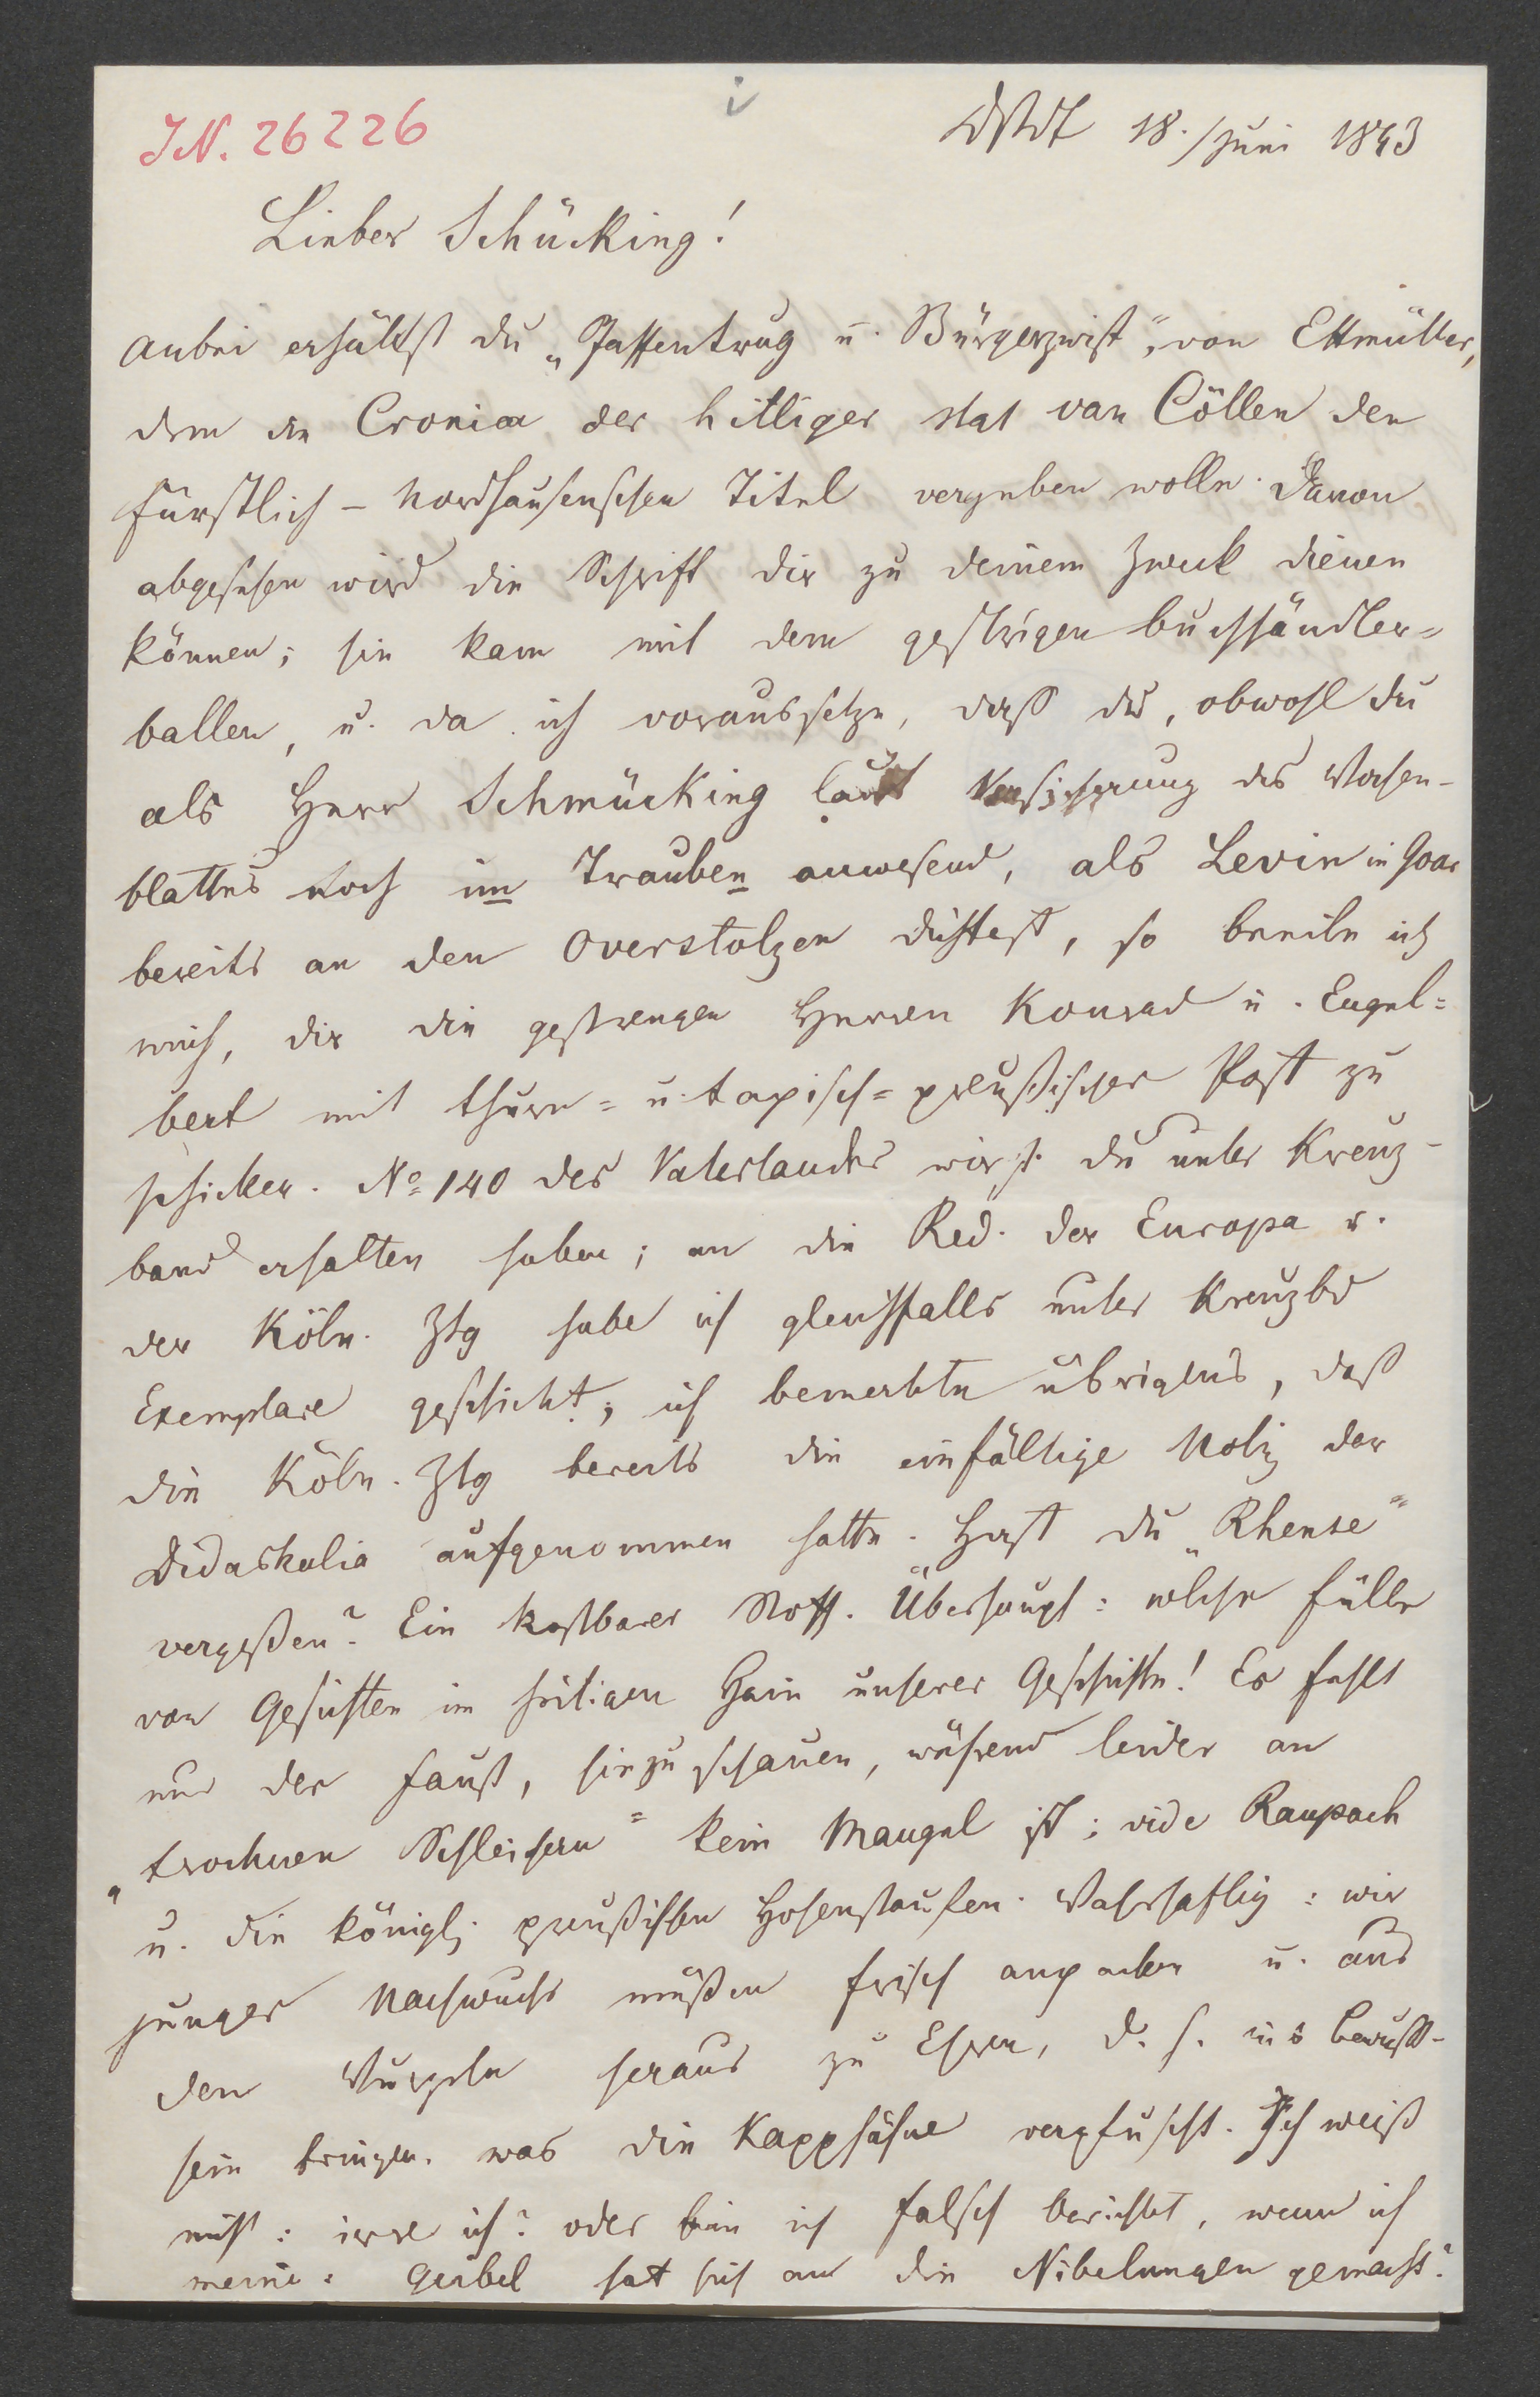 JN. 26226
Dstdt 18. Juni 1843
Lieber Schücking!
Anbei erhältst du „Pfaffentrug u. Bürgerzwist“, von Ettmüller,
dem die Cronica der hilliger stat van Cöllen den
fürstlich-nordhausenschen Titel vergeben wolle. Davon
abgesehen wird die Schrift dir zu deinem Zweck dienen
können; sie kam mit dem gestrigen Buchhändler-
ballen, u. da ich voraussetze, daß du, obwohl du
als Herr Schmücking laut Versicherung des Wochen-
blattes noch im Trauben anwesend, als Levin in Goar
bereits an den Overstolzen dichtest, so beeile ich
mich, dir die gestrengen Herren Konrad u. Engel=
bert mit thurn= u. taxisch=preußischer Post zu
schicken. No 140 des Vaterlandes wirst du unter Kreuz-
band erhalten haben; an die Red. der Europa u.
der Köln. Ztg habe ich gleichfalls unter Kreuzbd
Exemplare geschickt; ich bemerkte übrigens, daß
die Köln. Ztg bereits die einfältige Notiz der
Didaskalia aufgenommen hatte. Hast du „Rhense“
vergeßen? Ein kostbarer Stoff. Überhaupt: welche Fülle
von Gesichten im heitigen Hain unserer Geschichte! Es fehlt
nur der Faust, hinzuschauen, während leider an
„trocknen Schleichern“ kein Mangel ist; vide Raupach
u. die königl. preußischen Hohenstaufen. Wahrhaftig: wir
junger Nachwuchs müßen frisch anpacken u. aus
den Wurzeln heraus zu Ehren, d. h. ins Bewußt-
sein bringen, was die Kapphähne verpfuscht. Ich weiß
nicht: irre ich? oder bin ich falsch berichtet, wenn ich
meine: Geibel hat sich an die Nibelungen gemacht?